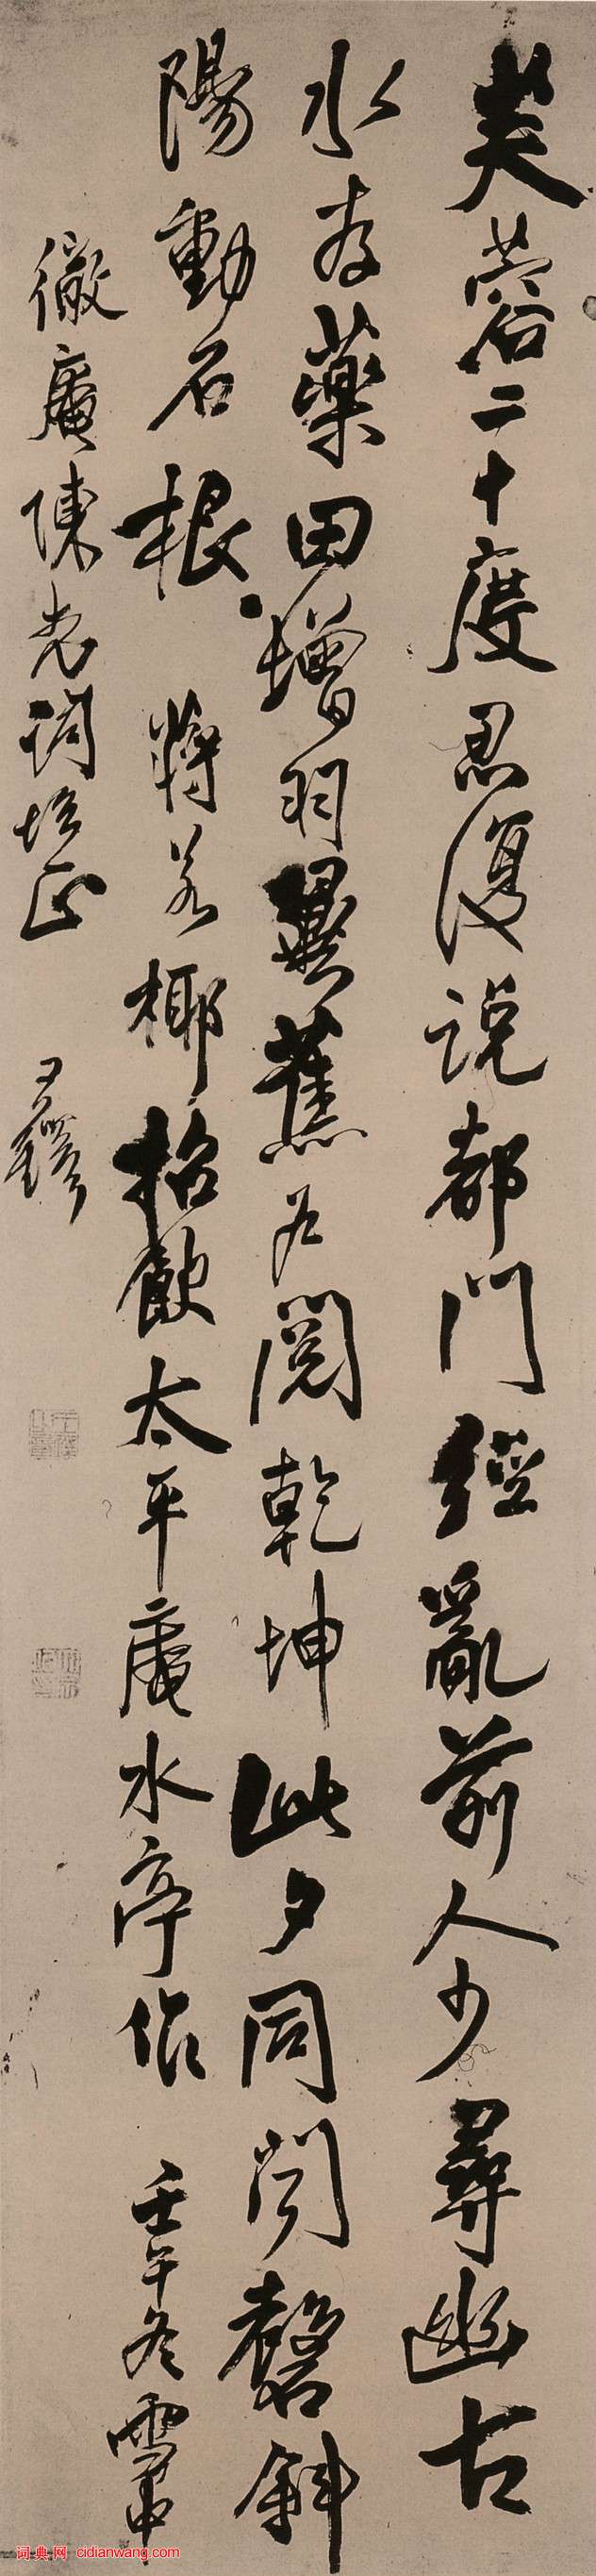 芙蓉二十度忍復說都門經亂前人少尋幽古
水存藥田增羽異蕉石閱乾坤此夕同聞磬斜
陽動石根 蔣若椰招飲太平庵水亭作 壬午冬雪中
徽庵陳老詞壇正 王鐸
词典网 cidianwang.com